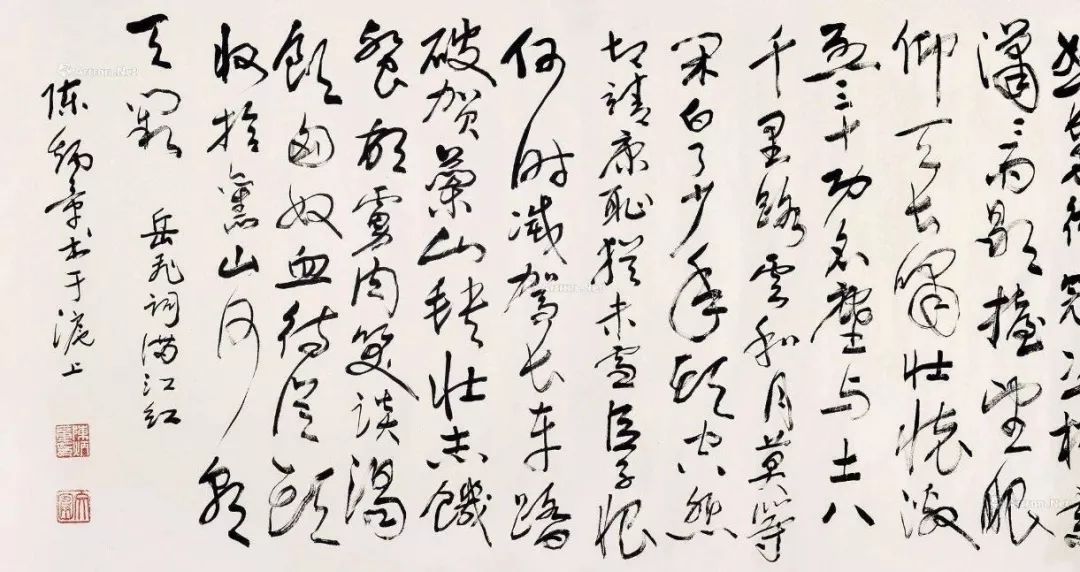 潇潇雨歇抬望眼
仰天长啸壮怀激
烈三十功名塵与土八
千里路雲和月莫等
闲白了少年头空悲
切靖康耻猶未雪臣子恨
何时滅驾长车踏
破贺蘭山缺壮志饑
餐胡虜肉笑谈渴
飲匈奴血待從頭
收拾舊山河朝
天阙 岳飛词满江红
陈 书于滬上
Artron.Net